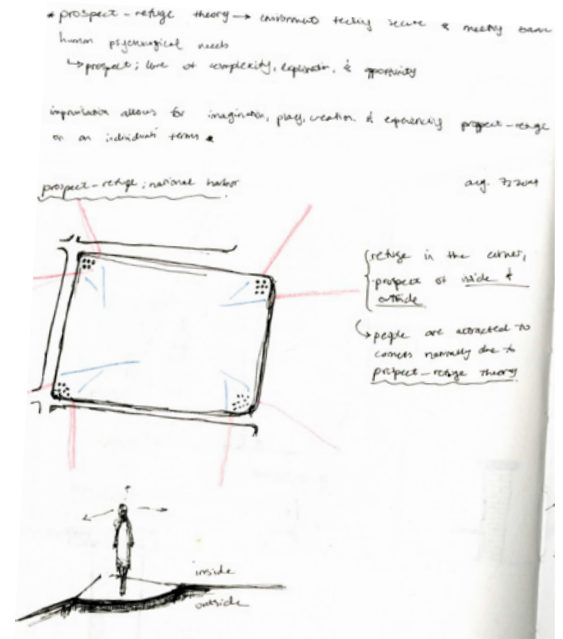 * prospect-refuge theory → environments feeling secure & meeting basic
human psychological needs
↳ prospect; love of complexity, exploration, & opportunity
improvisation allows for imagination, play, creation & experiencing prospect-refuge
on an individuals' terms *
prospect-refuge; national harbor
aug.
refuge in the corner,
prospect of inside &
outside
↳ people are attracted to
corners normally due to
prospect-refuge theory
inside
outside